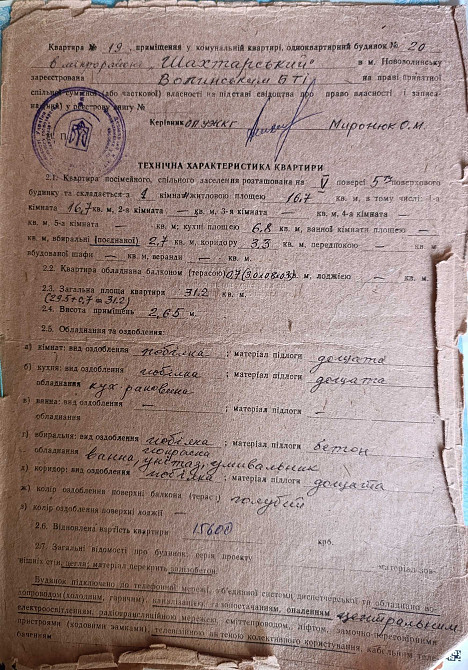 Квартира № 19, приміщення у комунальній квартирі, одноквартирний будинок № 20
в мікрорайоні "Шахтарський" в м. Нововолинську
зареєстрована Волинським БТІ на праві приватної
спільної сумісної (або часткової) власності на підставі свідоцтва про право власності і записа-
на у реєстрову книгу №
Керівник ОП УЖКГ Миронюк О. М.
М. П.
ТЕХНІЧНА ХАРАКТЕРИСТИКА КВАРТИРИ
2.1. Квартира посімейного, спільного заселення розташована на V поверсі 5ти поверхового
будинку та складається з 1 кімнат житловою площею 16,7 кв. м, в тому числі: 1-а
кімната 16,7 кв. м, 2-а кімната — кв. м, 3-я кімната — кв. м, 4-а кімната —
кв. м, 5-а кімната — кв. м; кухні площею 6,8 кв. м, ванної кімнати площею —
кв. м, вбиральні (поєднаної) 2,7 кв. м, коридору 3,3 кв. м, передпокою — кв. м,
вбудованої шафи — кв. м, веранди — кв. м.
2.2. Квартира обладнана балконом (терасою) 0,7 кв. м, лоджією — кв. м.
2.3. Загальна площа квартири 31.2 кв. м.
(29.5+0,7 = 31.2)
2.4. Висота приміщень 2,65 м.
2.5. Обладнання та оздоблення:
а) кімнат: вид оздоблення побілка ; матеріал підлоги дощата
б) кухня: вид оздоблення побілка ; матеріал підлоги дощата
обладнання кух раковина
в) ванна: вид оздоблення — ; матеріал підлоги —
обладнання
г) вбиральня: вид оздоблення побілка ; матеріал підлоги бетон
покраска
обладнання ванна, унітаз, умивальник
коридор: вид оздоблення побілка ; матеріал підлоги дощата
ж) колір оздоблення поверхні балкона (тераси) голубий
з) колір оздоблення поверхні лоджії —
2.6. Відновлена вартість квартири 15600 крб.
2.7. Загальні відомості про будинок: серія проекту матеріал зов-
нішніх стін цегла, матеріал перекрить залізобетон.
Будинок підключено до телефонної мережі, об'єднаної системи диспетчерської та обладнано во-
допроводом (холодним, гарячим), каналізацією та водостачанням, опаленням центральним
електроосвітленням, радіотрансляційною мережею, сміттєпроводом, ліфтом, замочно-переговорними
пристроями (кодовими замками), телевізійною антеною колективного користування, кабельним теле-
баченням